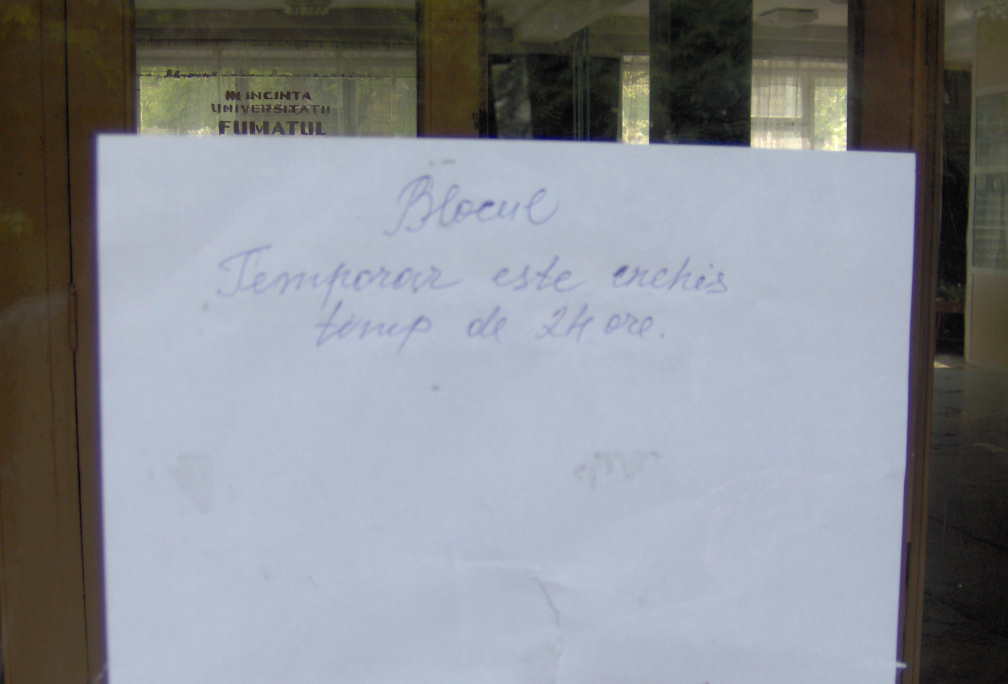 ÎN INCINTA
UNIVERSITĂŢII
FUMATUL
Blocul
Temporar este enchis
timp de 24 ore.